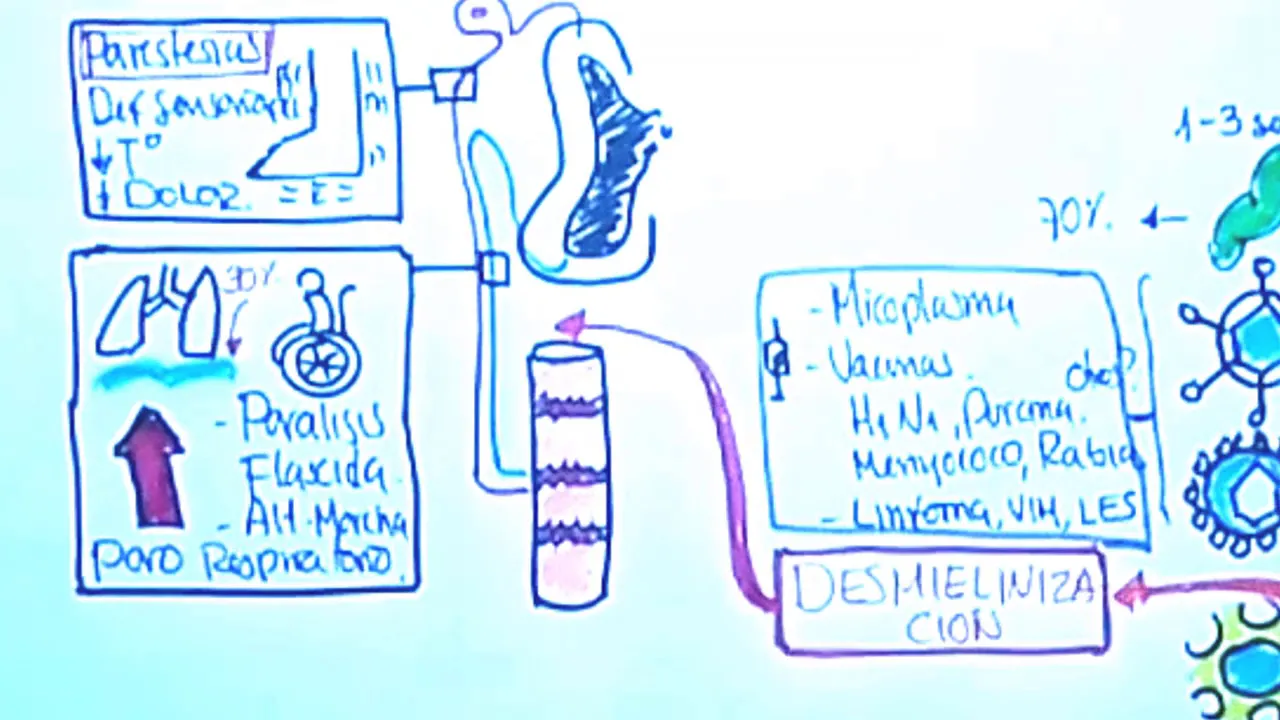 Parestesias
Def sensoriales
↓ T°
↓ Dolor.
30%
- Paralisis
Flascida.
- Alt. Marcha
Paro Respiratorio.
1-3 se
70%. ←
- Micoplasma
- Vacunas.
H1 N1,
Menigococo, Rabia
- Linfoma, VIH, LES
DESMIELINIZA
CION